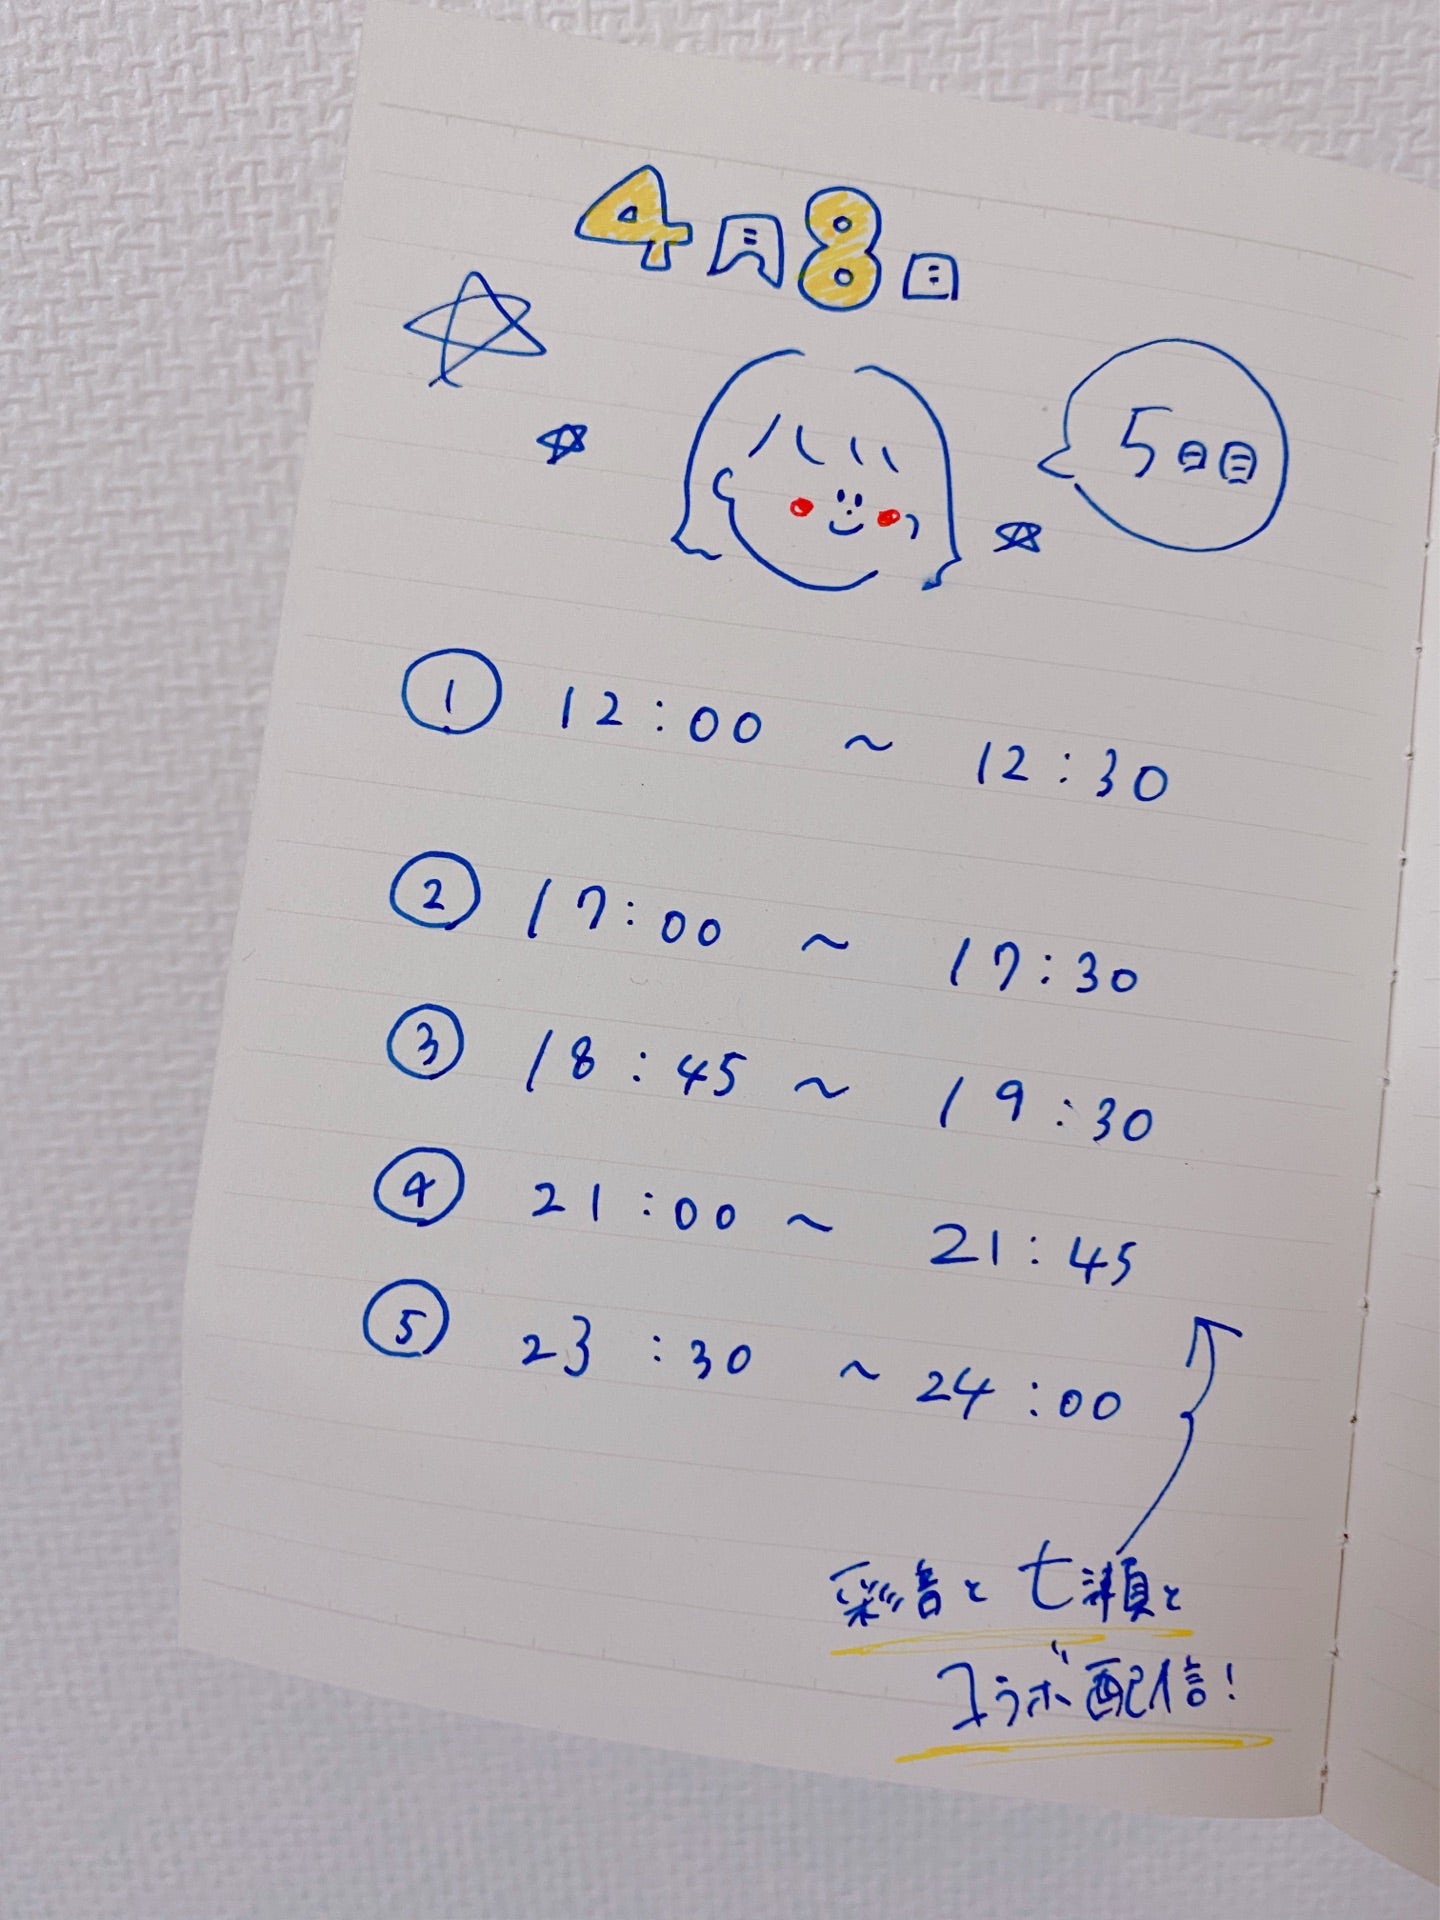 4月8日
5日目
① 12:00 ~ 12:30
② 17:00 ~ 17:30
③ 18:45 ~ 19:30
④ 21:00 ~ 21:45
⑤ 23:30 ~ 24:00
彩音と七瀬と
コラボ配信!